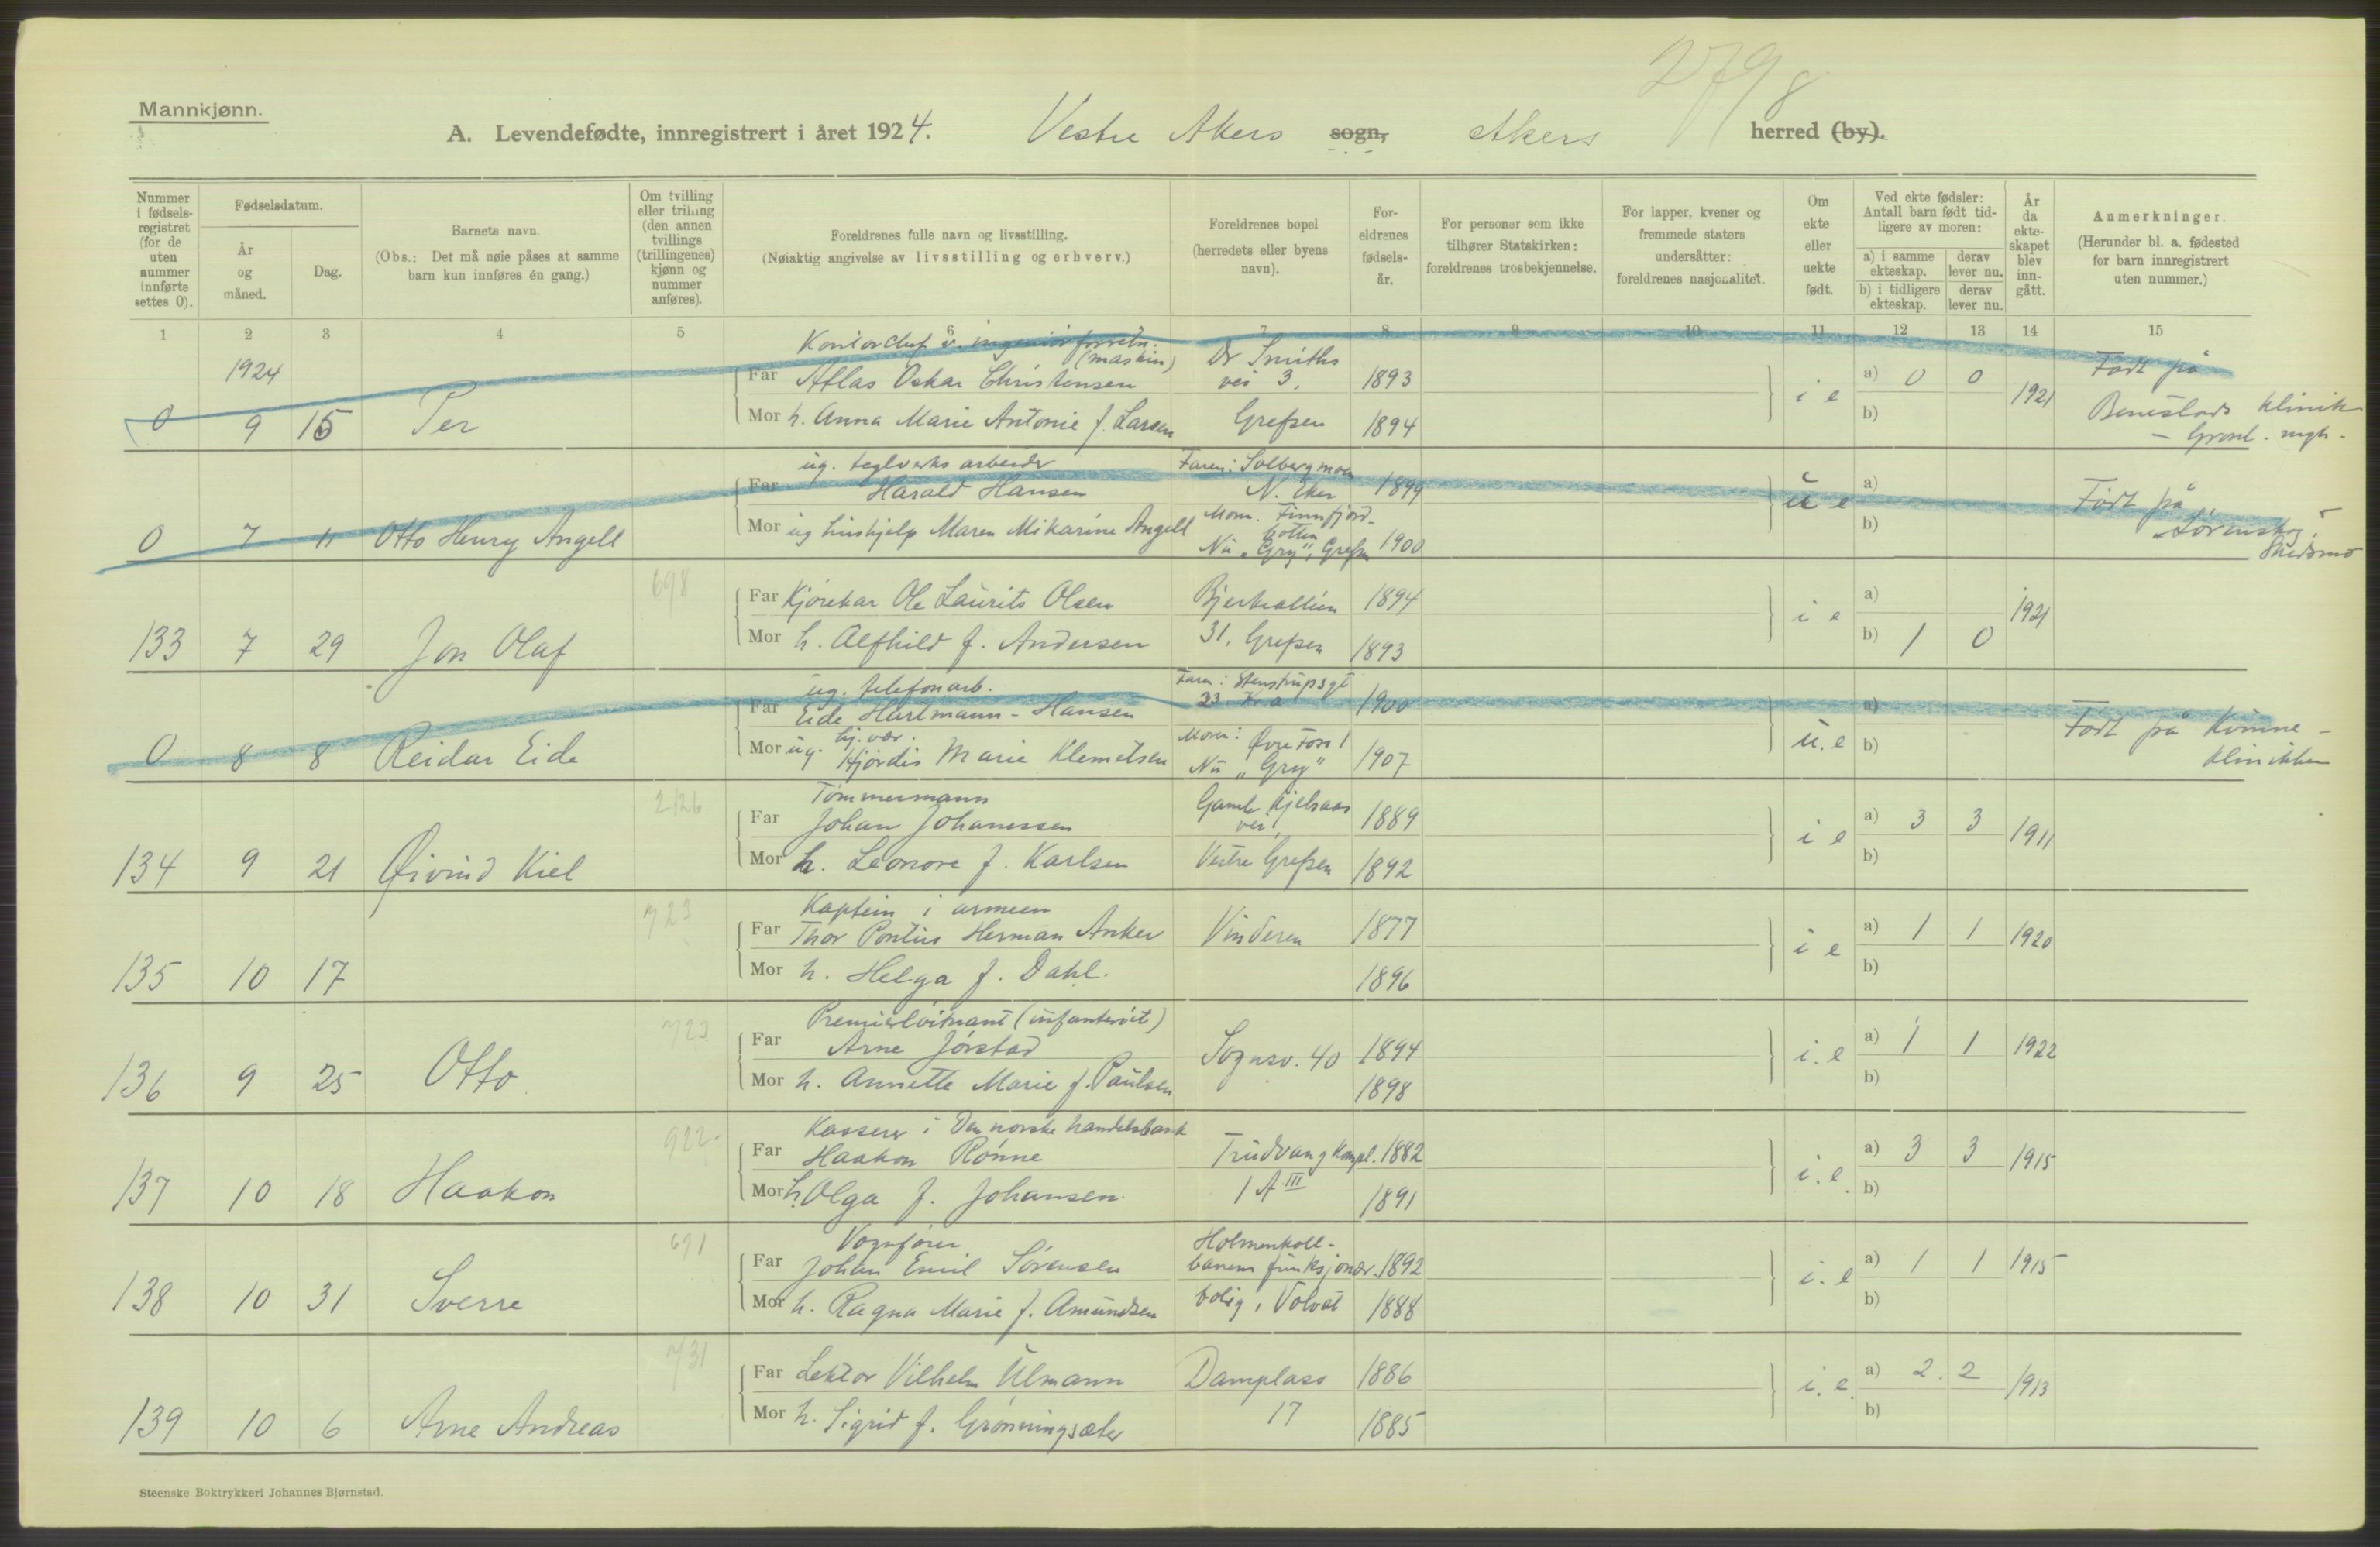 2798
Mannkjønn.
A. Levendefødte, innregistrert i året 1924. Vestre Akers sogn, Akers herred (by).
Nummer i fødselsregistret (for de uten nummer innførte settes 0).
Fødselsdatum.
År og måned.
Dag.
Barnets navn.
(Obs.: Det må nøie påses at samme barn kun innføres én gang.)
Om tvilling eller trilling (den annen tvillings (trillingenes) kjønn og nummer anføres).
Foreldrenes fulle navn og livsstilling.
(Nøiaktig angivelse av livsstilling og erhverv.)
Foreldrenes bopel (herredets eller byens navn).
Foreldrenes fødselsår.
For personer som ikke tilhører Statskirken: foreldrenes trosbekjennelse.
For lapper, kvener og fremmede staters undersåtter: foreldrenes nasjonalitet.
Om ekte eller uekte født.
Ved ekte fødsler: Antall barn født tidligere av moren:
a) i samme ekteskap. derav lever nu.
b) i tidligere ekteskap. derav lever nu.
År da ekteskapet blev inngått.
Anmerkninger.
(Herunder bl. a. fødested for barn innregistrert uten nummer.)
1 2 3 4 5 6 7 8 9 10 11 12 13 14 15
1924
Kontorchef v. ingeniørforretn. (maskin)
Far Atlas Oskar Christensen Dr Smiths vei 3, 1893
0 9 15 Per
Mor h. Anna Marie Antonie f. Larsen Grefsen 1894
i e a) 0 0 b) 1921
Født på klinik
ug. teglverks arbeider
Far Harald Hansen Faren: Solbergmoen N. Eker 1899
0 7 11 Otto Henry Angell
Mor ug hushjelp Maren Mikarine Angell Moren. Finnfjordbotten Nu "Gry", Grefsen 1900
u e a) b)
Født på "Lørenskog", Skedsmo
698
Far Kjørekar Ole Laurits Olsen Bjerkealleen 1894
133 7 29 Jon Olaf
Mor h. Alfhild f. Andersen 31, Grefsen 1893
i e a) b) 1 0 1921
ug. telefonarb.
Far Eide Hartmann-Hansen Faren: Stenstrupsgt 23. Kr.a 1900
0 8 8 Reidar Eide
Mor ug. hj. vær. Hjørdis Marie Klemetsen Moren: Øvre Foss 1 Nu "Gry" 1907
u. e a) b)
Født på Kvinneklinikken
2126
Tømmermann
Far Johan Johanessen Gamle Kjelsaas vei, 1889
134 9 21 Øivind Kiel
Mor h. Leonore f. Karlsen Vestre Grefsen 1892
i e a) 3 3 b) 1911
723
Kaptein i armeen
Far Thor Pontus Herman Anker Vinderen 1877
135 10 17
Mor h. Helga f. Dahl. 1896
i e a) 1 1 b) 1920
723
Premierløitnant (infanteriet)
Far Arne Jørstad Sognsv. 40 1894
136 9 25 Otto
Mor h. Annette Marie f. Paulsen 1898
i. e a) 1 1 b) 1922
922.
Kasserer i Den norske handelsbank
Far Haakon Rønne Trudvang kompl. 1882
137 10 18 Haakon
Mor h. Olga f. Johansen. 1 A III 1891
i. e. a) 3 3 b) 1915
691
Vognfører
Far Johan Emil Sørensen Holmenkollbanens funksjonær- 1892
138 10 31 Sverre
Mor h. Ragna Marie f. Amundsen bolig, Volvat 1888
i. e a) 1 1 b) 1915
731
Far Lektor Vilhelm Ulmann Damplass 1886
139 10 6 Arne Andreas
Mor h. Sigrid f. Grønningsæter 17 1885
i. e. a) 2. 2 b) 1913
Steenske Boktrykkeri Johannes Bjørnstad.